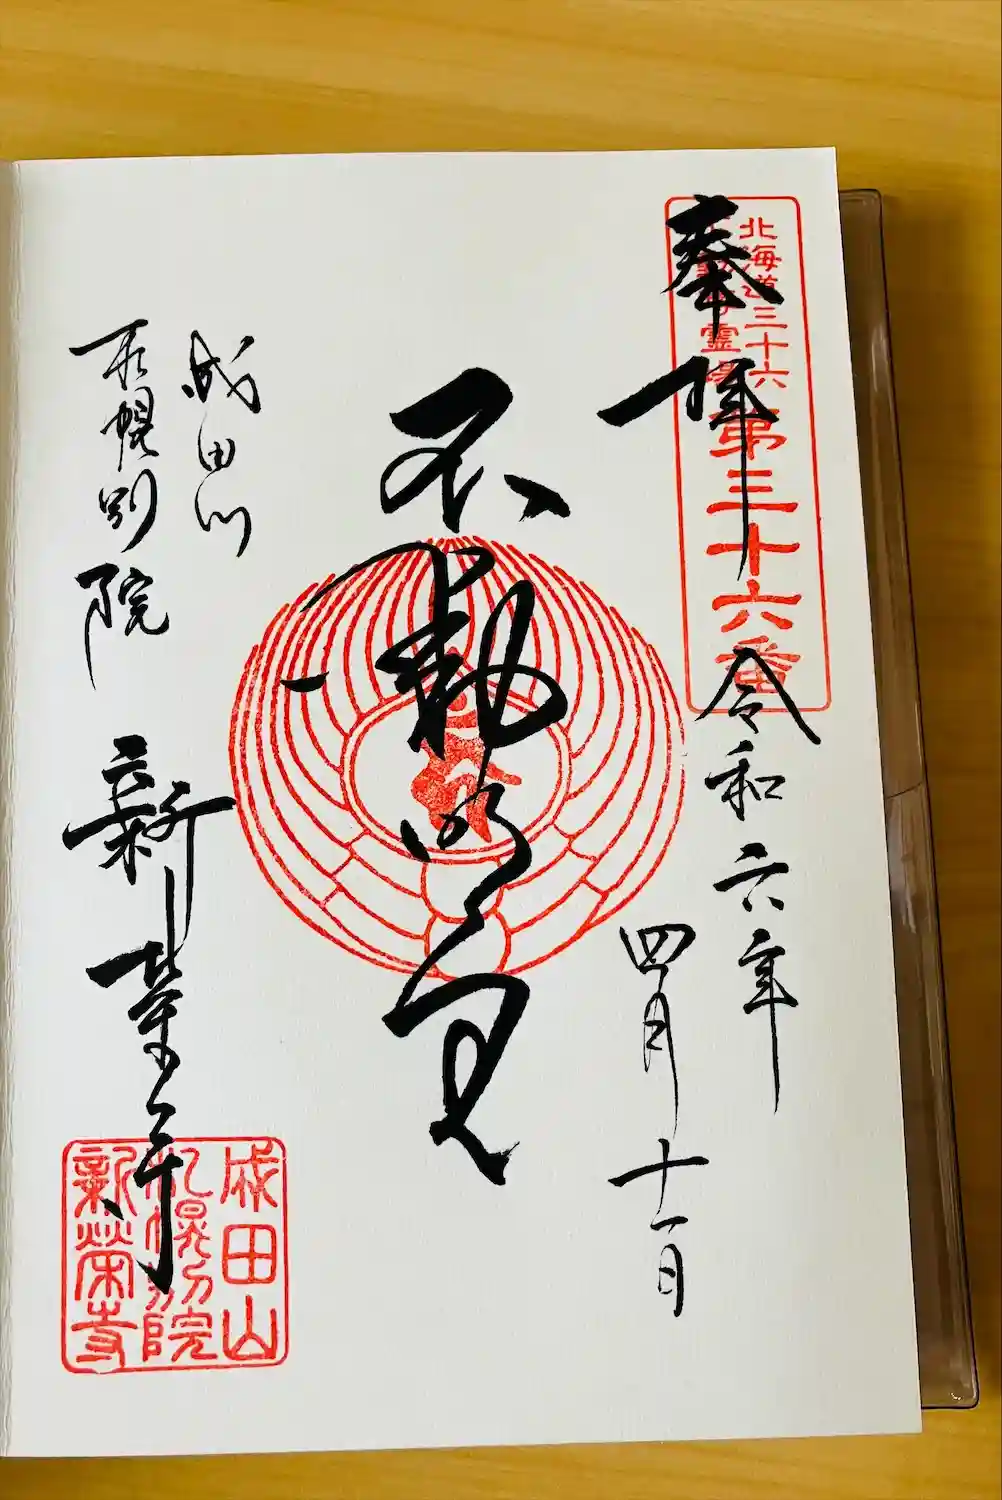 奉拝
北海道三十六
不動尊霊場
第三十六番
令和六年
四月十一日
不動明王
成田山
札幌別院
新栄寺
成田山
札幌別院
新榮寺